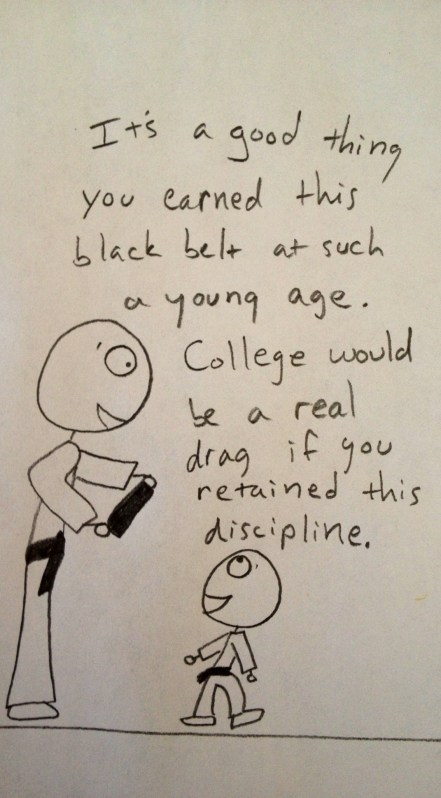 It's a good thing
you earned this
black belt at such
a young age.
College would
be a real
drag if you
retained this
discipline.